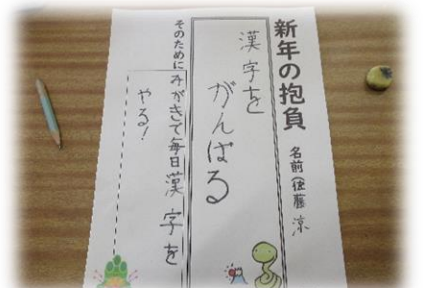 新年の抱負
名前(後藤 涼
漢字を
がんばる
そのために
みがきて毎日漢字を
やる!